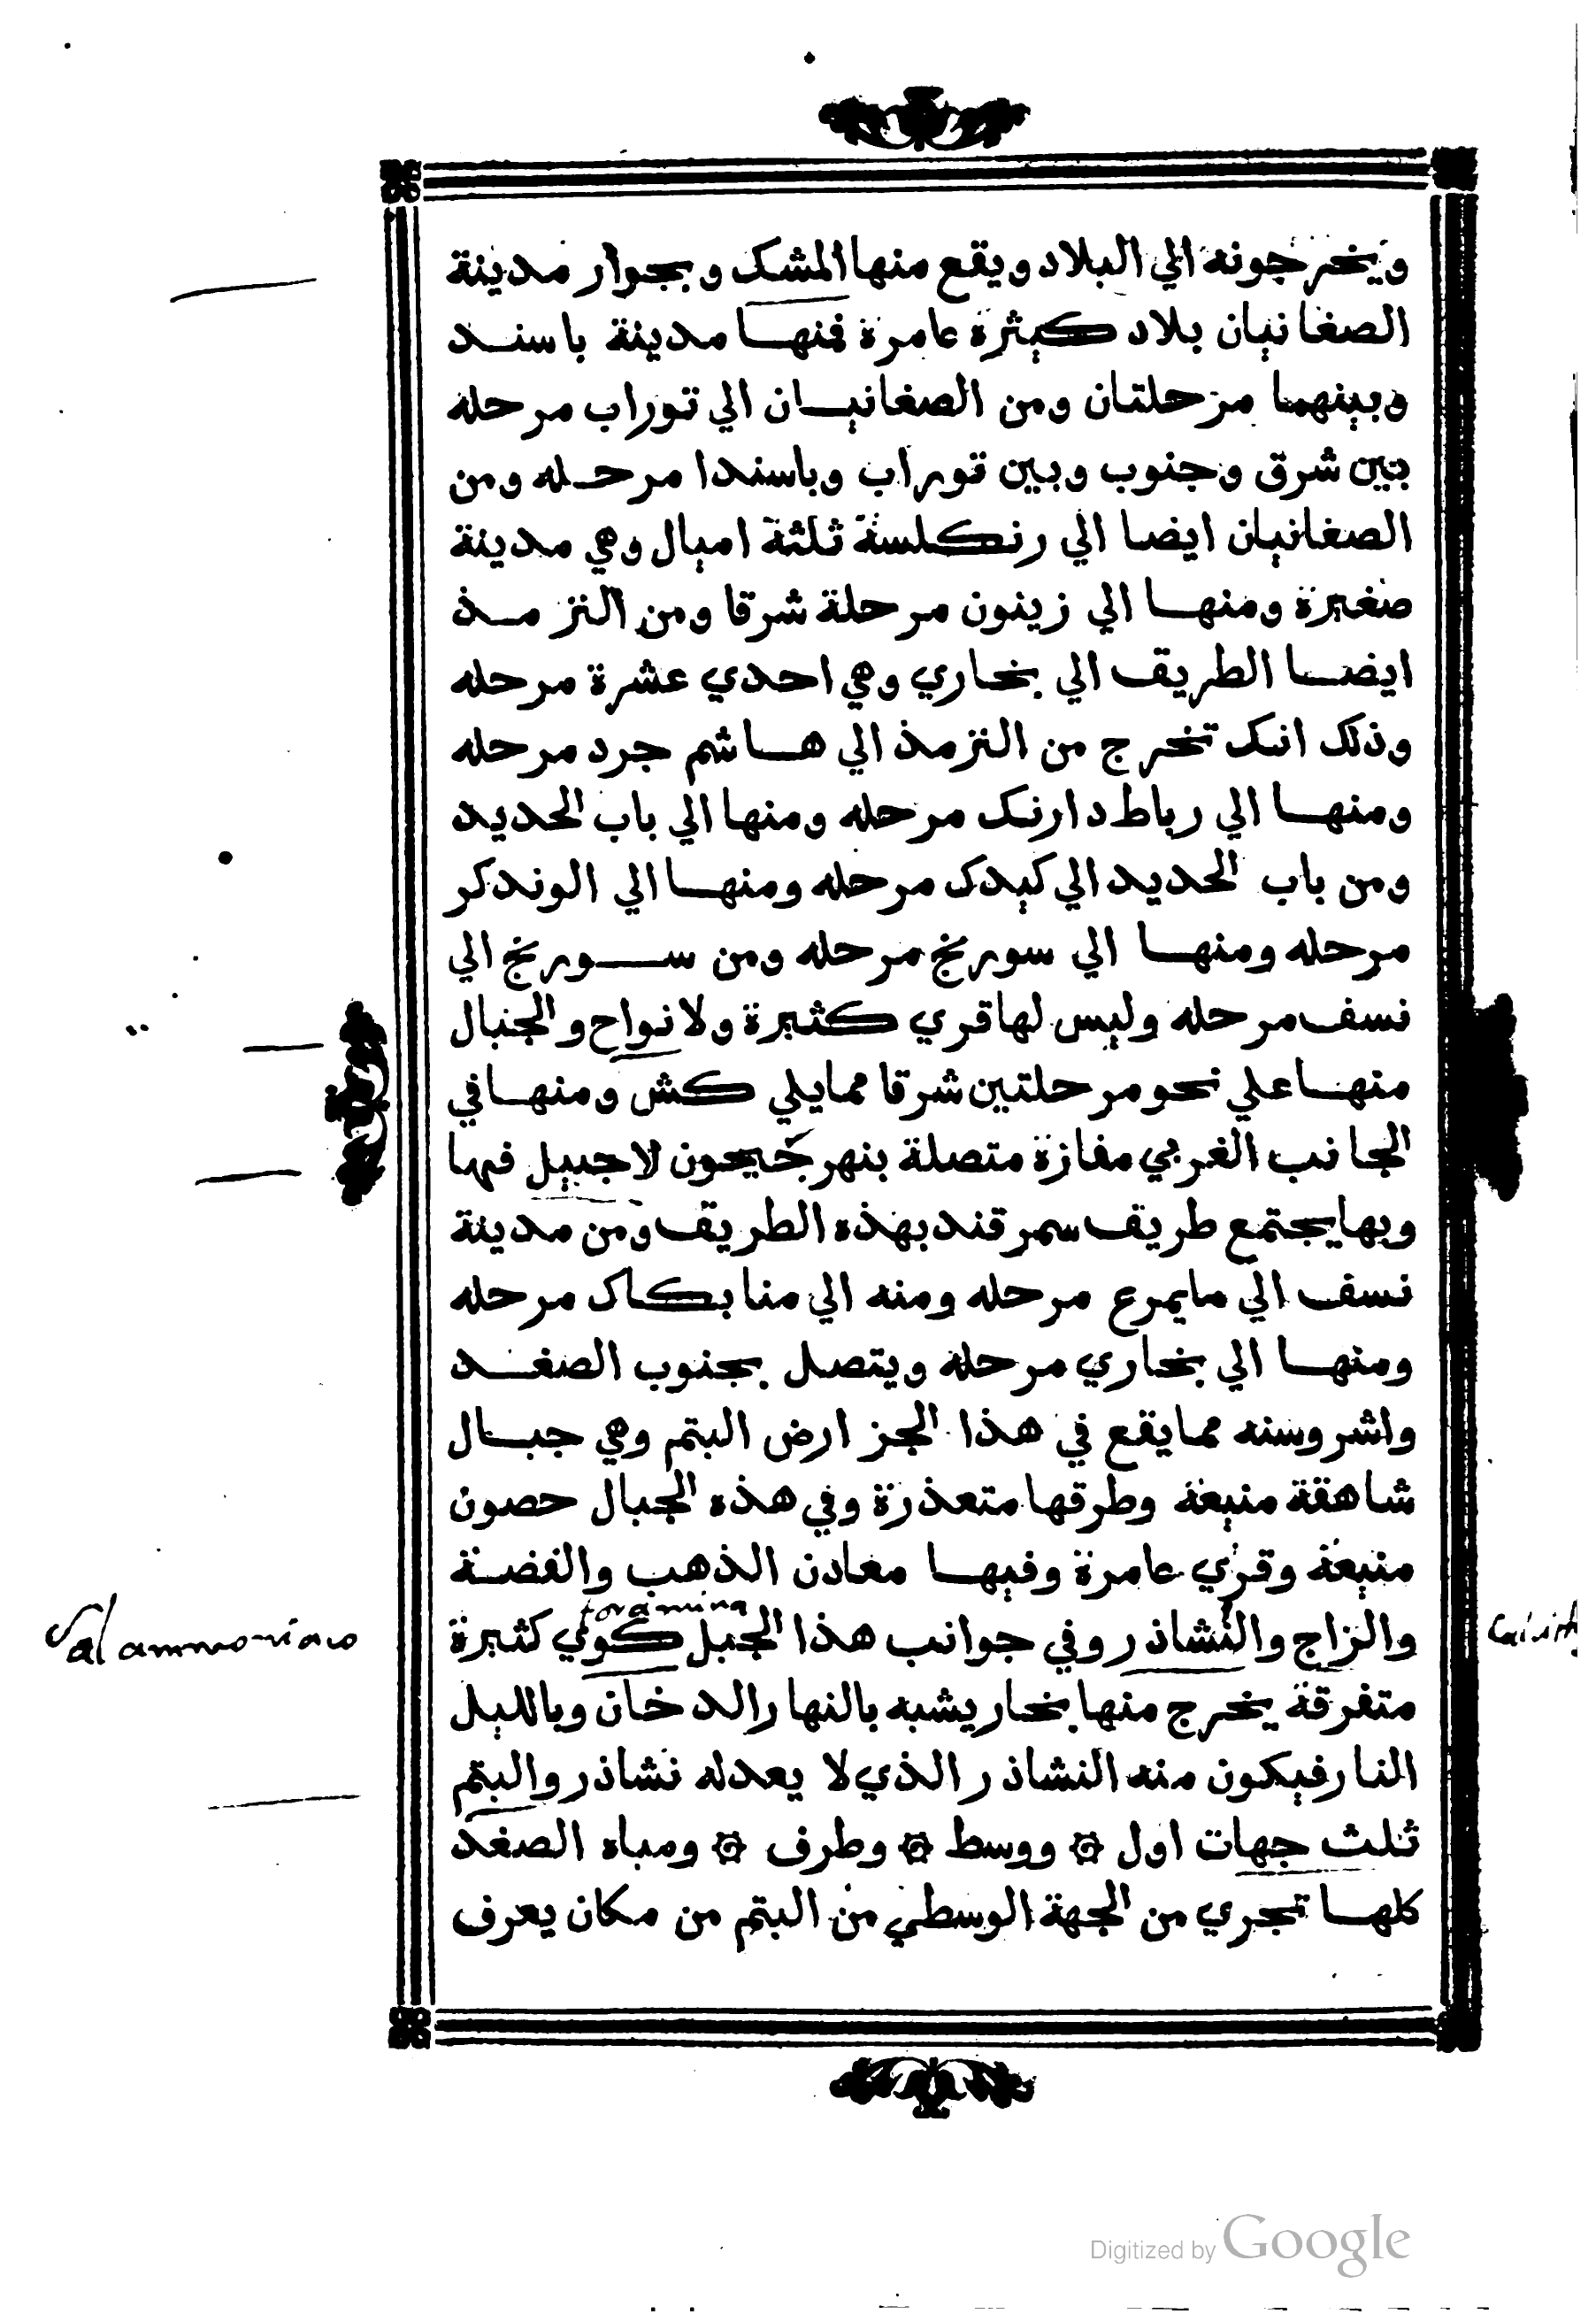 ويخرجونه الي البلاد ويقع منها المشك وبجوار مدينة
الصغانيان بلاد كثيرة عامرة فمنها مدينة باسند
وبينهما مرحلتان ومن الصغانيان الي توراب مرحله
بين شرق وجنوب وبين توراب وباسندا مرحله ومن
الصغانيان ايضا الي رنكلسة ثلثة اميال وهي مدينة
صغيرة ومنها الي زينون مرحلة شرقا ومن الترمذ
ايضا الطريق الي بخاري وهي احدي عشرة مرحله
وذلك انك تخرج من الترمذ الي هاشم جرد مرحله
ومنها الي رباط دارنك مرحله ومنها الي باب الحديد
ومن باب الحديد الي كيدك مرحله ومنها الي الوندكر
مرحله ومنها الي سورنج مرحله ومن سورنج الي
نسف مرحله وليس لها قري كثيرة ولا نواح والجبال
منها علي نحو مرحلتين شرقا مما يلي كش ومنها في
الجانب الغربي مفازة متصلة بنهر جيحون لا جبيل فيها
وبها يجتمع طريق سمرقند بهذه الطريق ومن مدينة
نسف الي مايمرع مرحله ومنه الي منابكاك مرحله
ومنها الي بخاري مرحلة ويتصل بجنوب الصغد
واشروسنه مما يقع في هذا الجز ارض البتم وهي جبال
شاهقة منيعة وطرقها متعذرة وفي هذه الجبال حصون
منيعة وقري عامرة وفيها معادن الذهب والفضة
foramina
والزاج والنشاذر وفي جوانب هذا الجبل كوي كثيرة
Sal ammoniaco
متفرقة يخرج منها بخار يشبه بالنهار الدخان وبالليل
النار فيكون منه النشاذر الذي لا يعدله نشاذر والبتم
ثلث جهات اول ۞ ووسط ۞ وطرف ۞ ومياه الصغد
كلها تجري من الجهة الوسطي من البتم من مكان يعرف
Digitized by Google